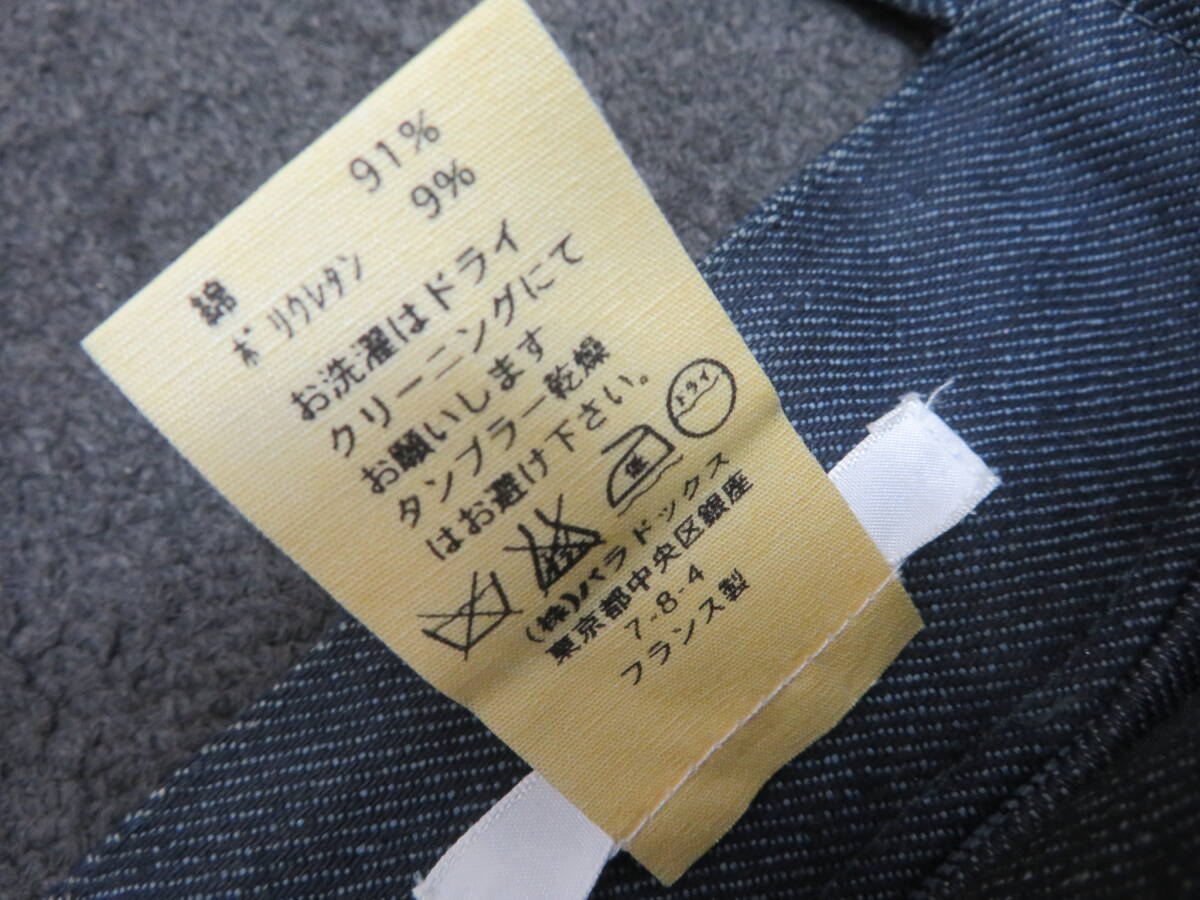 綿 91%
ポリウレタン 9%
お洗濯はドライ
クリーニングにて
お願いします
タンブラー乾燥
はお避け下さい。
低 ドライ
(株)パラドックス
東京都中央区銀座
7-8-4
フランス製